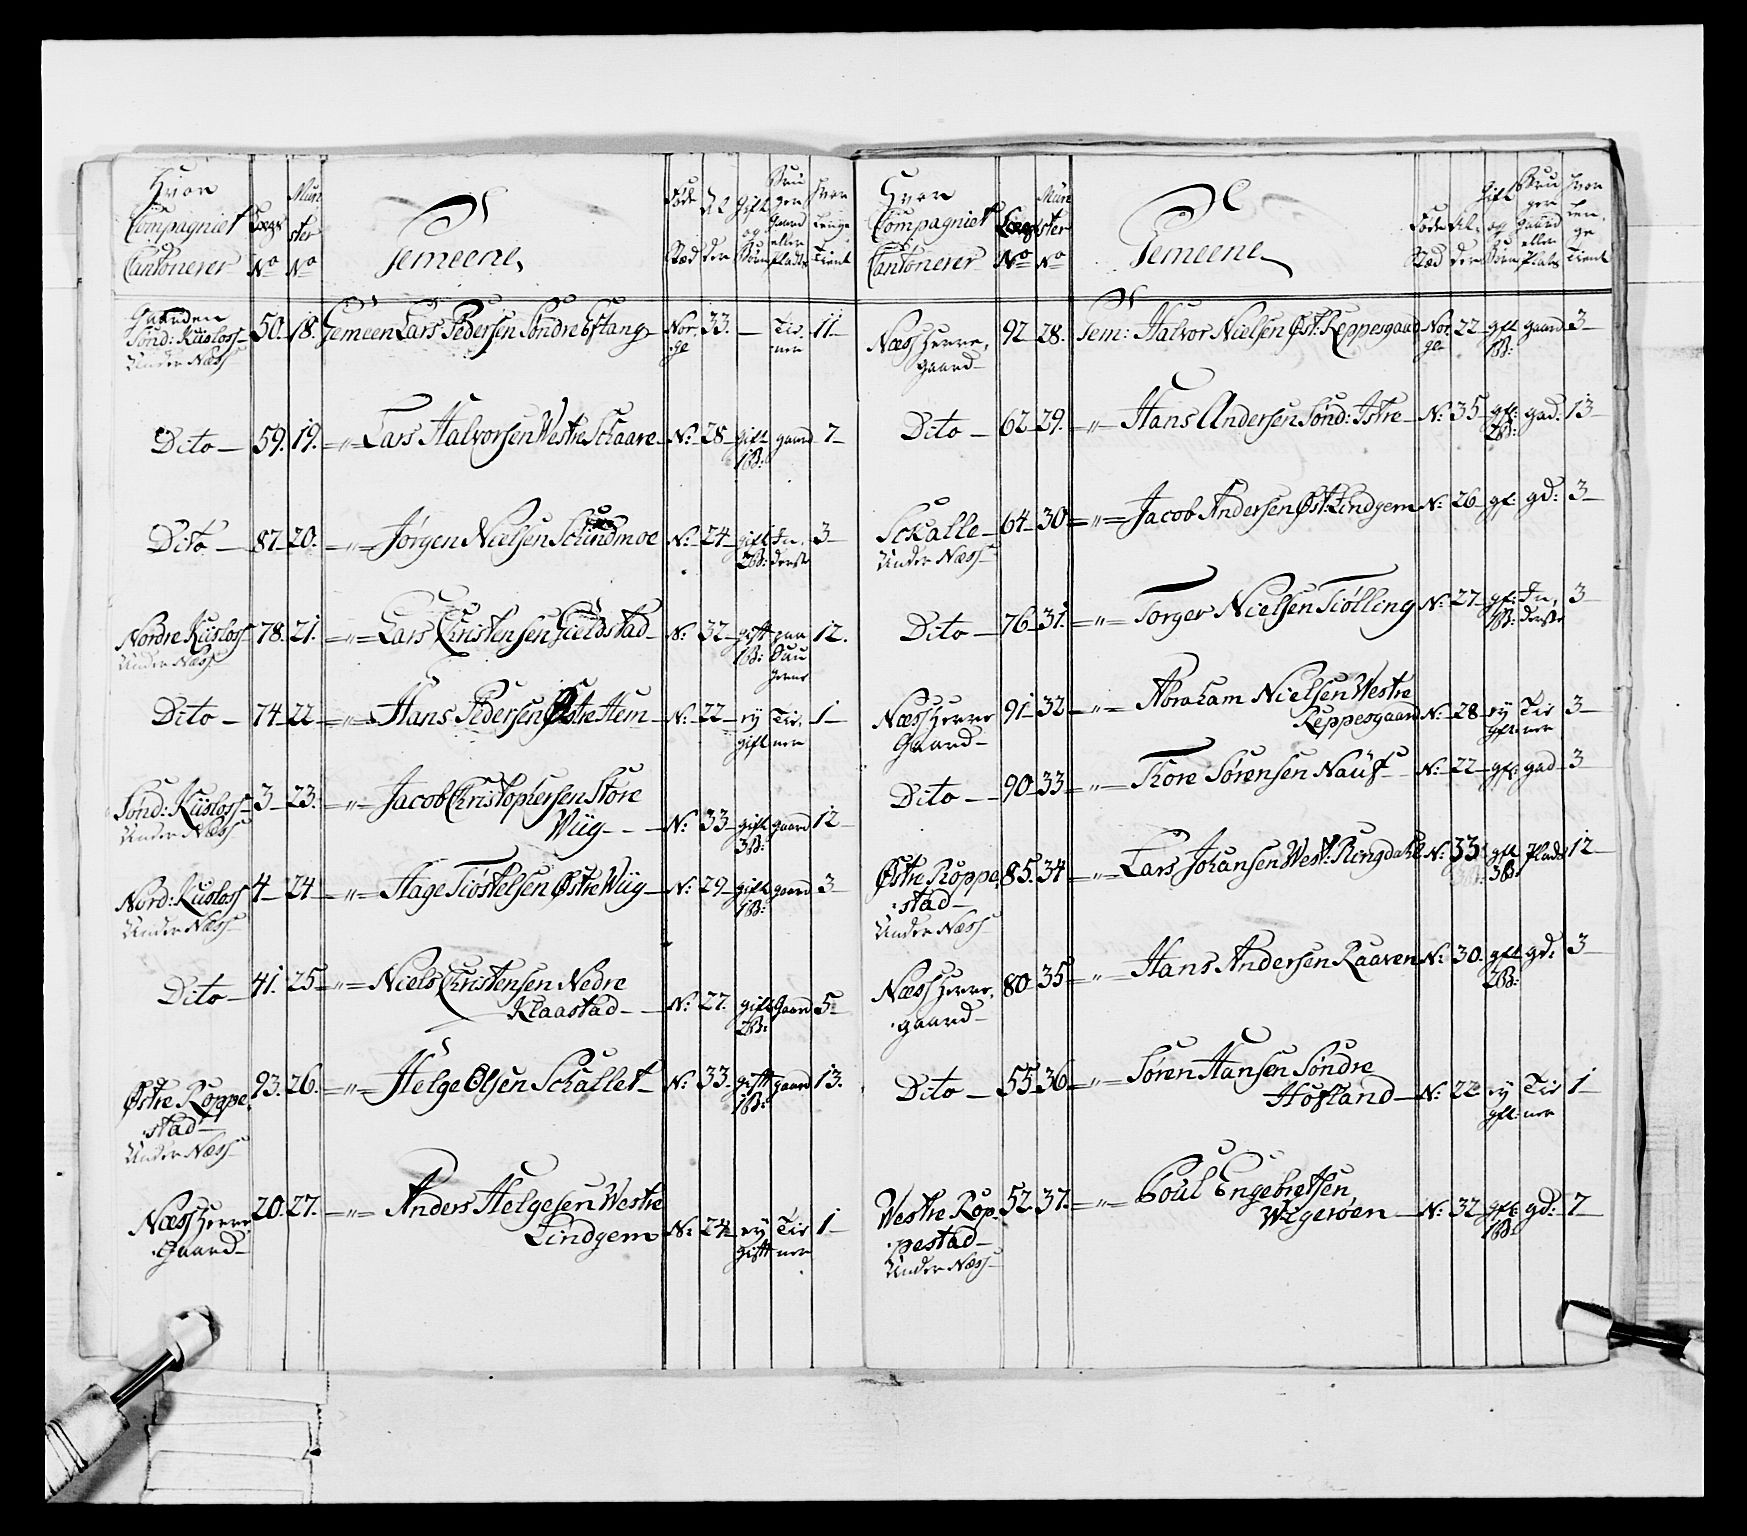 Hvor Compagniet Cantonerer | Laegs No | Mun ster No | Gemeene, | Føde Stæd | Al der | Gift og Børn | Bru ger Gaard eller Plads | hvor lenge Tient
Gaarden Sønd: Kiisløss Under Næss | 50. | 18. | Gemeen Lars Pedersen Søndre Efstang | Nor ge | 33. | — | Tie ner | 11
Dito — | 59. | 19. | —"— Lars Halvorsen Westre Schaare | N: | 28 | gift 1B: | gaard | 7
Dito — | 87 | 20. | —"— Jørgen Nielsen Schindmoe | N: | 24 | gift 2B: | In, derste | 3
Nordre Kiisløss Under Næss | 78. | 21. | —"— Lars Christensen Gieldstad | N: | 32 | gift 1B: | | 12.
Dito — | 74 | 22 | —"— Hans Pedersen Østre Hem | N: | 22 | ey gift | Tie, ner | 1
Sønd: Kiisløss Under Næss | 3 | 23. | —"— Jacob Christophersen Store
Wiig - - — | N: | 33 | gift 3B: | gaard | 12
Nord: Kiisløss Under Næss | 4 | 24 | —"— Hage Tiostelsen Østre Wiig | N: | 29 | gift 1B: | gaard | 3
Dito — | 41. | 25 | —"— Niels Christensen Nedre
Klaastad - — | N: | 27. | gift 2B: | Gaard | 5
Østre Roppe, stad — Under Næss | 93. | 26. | —"— Helge Olsen Schallet | N: | 33. | gift 1B: | gaard | 13.
Næss Herre Gaard — | 20. | 27. | —"— Anders Helgesen Westre
Lindgem | N: | 24 | ey gift | Tie ner | 1
Hvor Compagniet Cantonerer | Laegs No | Mun ster No | Gemeene | Føde Stæd | Al, der | Gift og Børn | Bru ger Gaard eller Plads | hvor len, ge Tient
Næss Herre, gaard — | 92 | 28. | Gem: Halvor Nielsen Øst: Reppesgaad | Nor, ge | 22 | gft 1B: | gaard | 3
Dito — | 62 | 29. | —"— Hans Andersen Sønd: Istre | N: | 35 | gft: 2B: | gad: | 13
Schalle — Under Næss | 64 | 30 | —"— Jacob Andersen Øst: Lindgem | N: | 26 | gf: | gd: | 3
Dito — | 76 | 31. | —"— Torger Nielsen Tiølling | N: | 27 | gf: 1B: | In, derste | 3
Næss Herre Gaard — | 91 | 32 | —"— Abraham Nielsen Westre
Reppesgaard | N: | 28 | ey gft: | Tie ner | 3
Dito — | 90 | 33 | —"— Thore Sørensen Nauf | N: | 22 | gf: | gad | 3
Østre Roppe, stad — Under Næss | 85. | 34 | —"— Lars Johansen West: Ringdahl | N: | 33 | gft 3B: | Plads | 12
Næss Herre, gaard — | 80 | 35 | —"— Hans Andersen Raaven | N: | 30. | gft 2B: | gd: | 3
Dito — | 55 | 36 | —"— Søren Hansen Søndre
Hofland — | N: | 22 | ey gft: | Tie ner | 1
Westre Rop, pestad — Under Næss | 52. | 37. | —"— Poul Engebretsen,
Wigerøen — | N: | 32 | gft: 1B: | gd: | 7